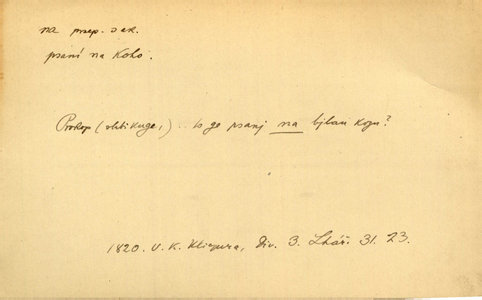 na přep. s ak.
psaní na koho.
Prokop ( : to ge psanj na bjlau kozu?
1820. V. K. Klicpera, Div. 3. Lhář. 31. 23.